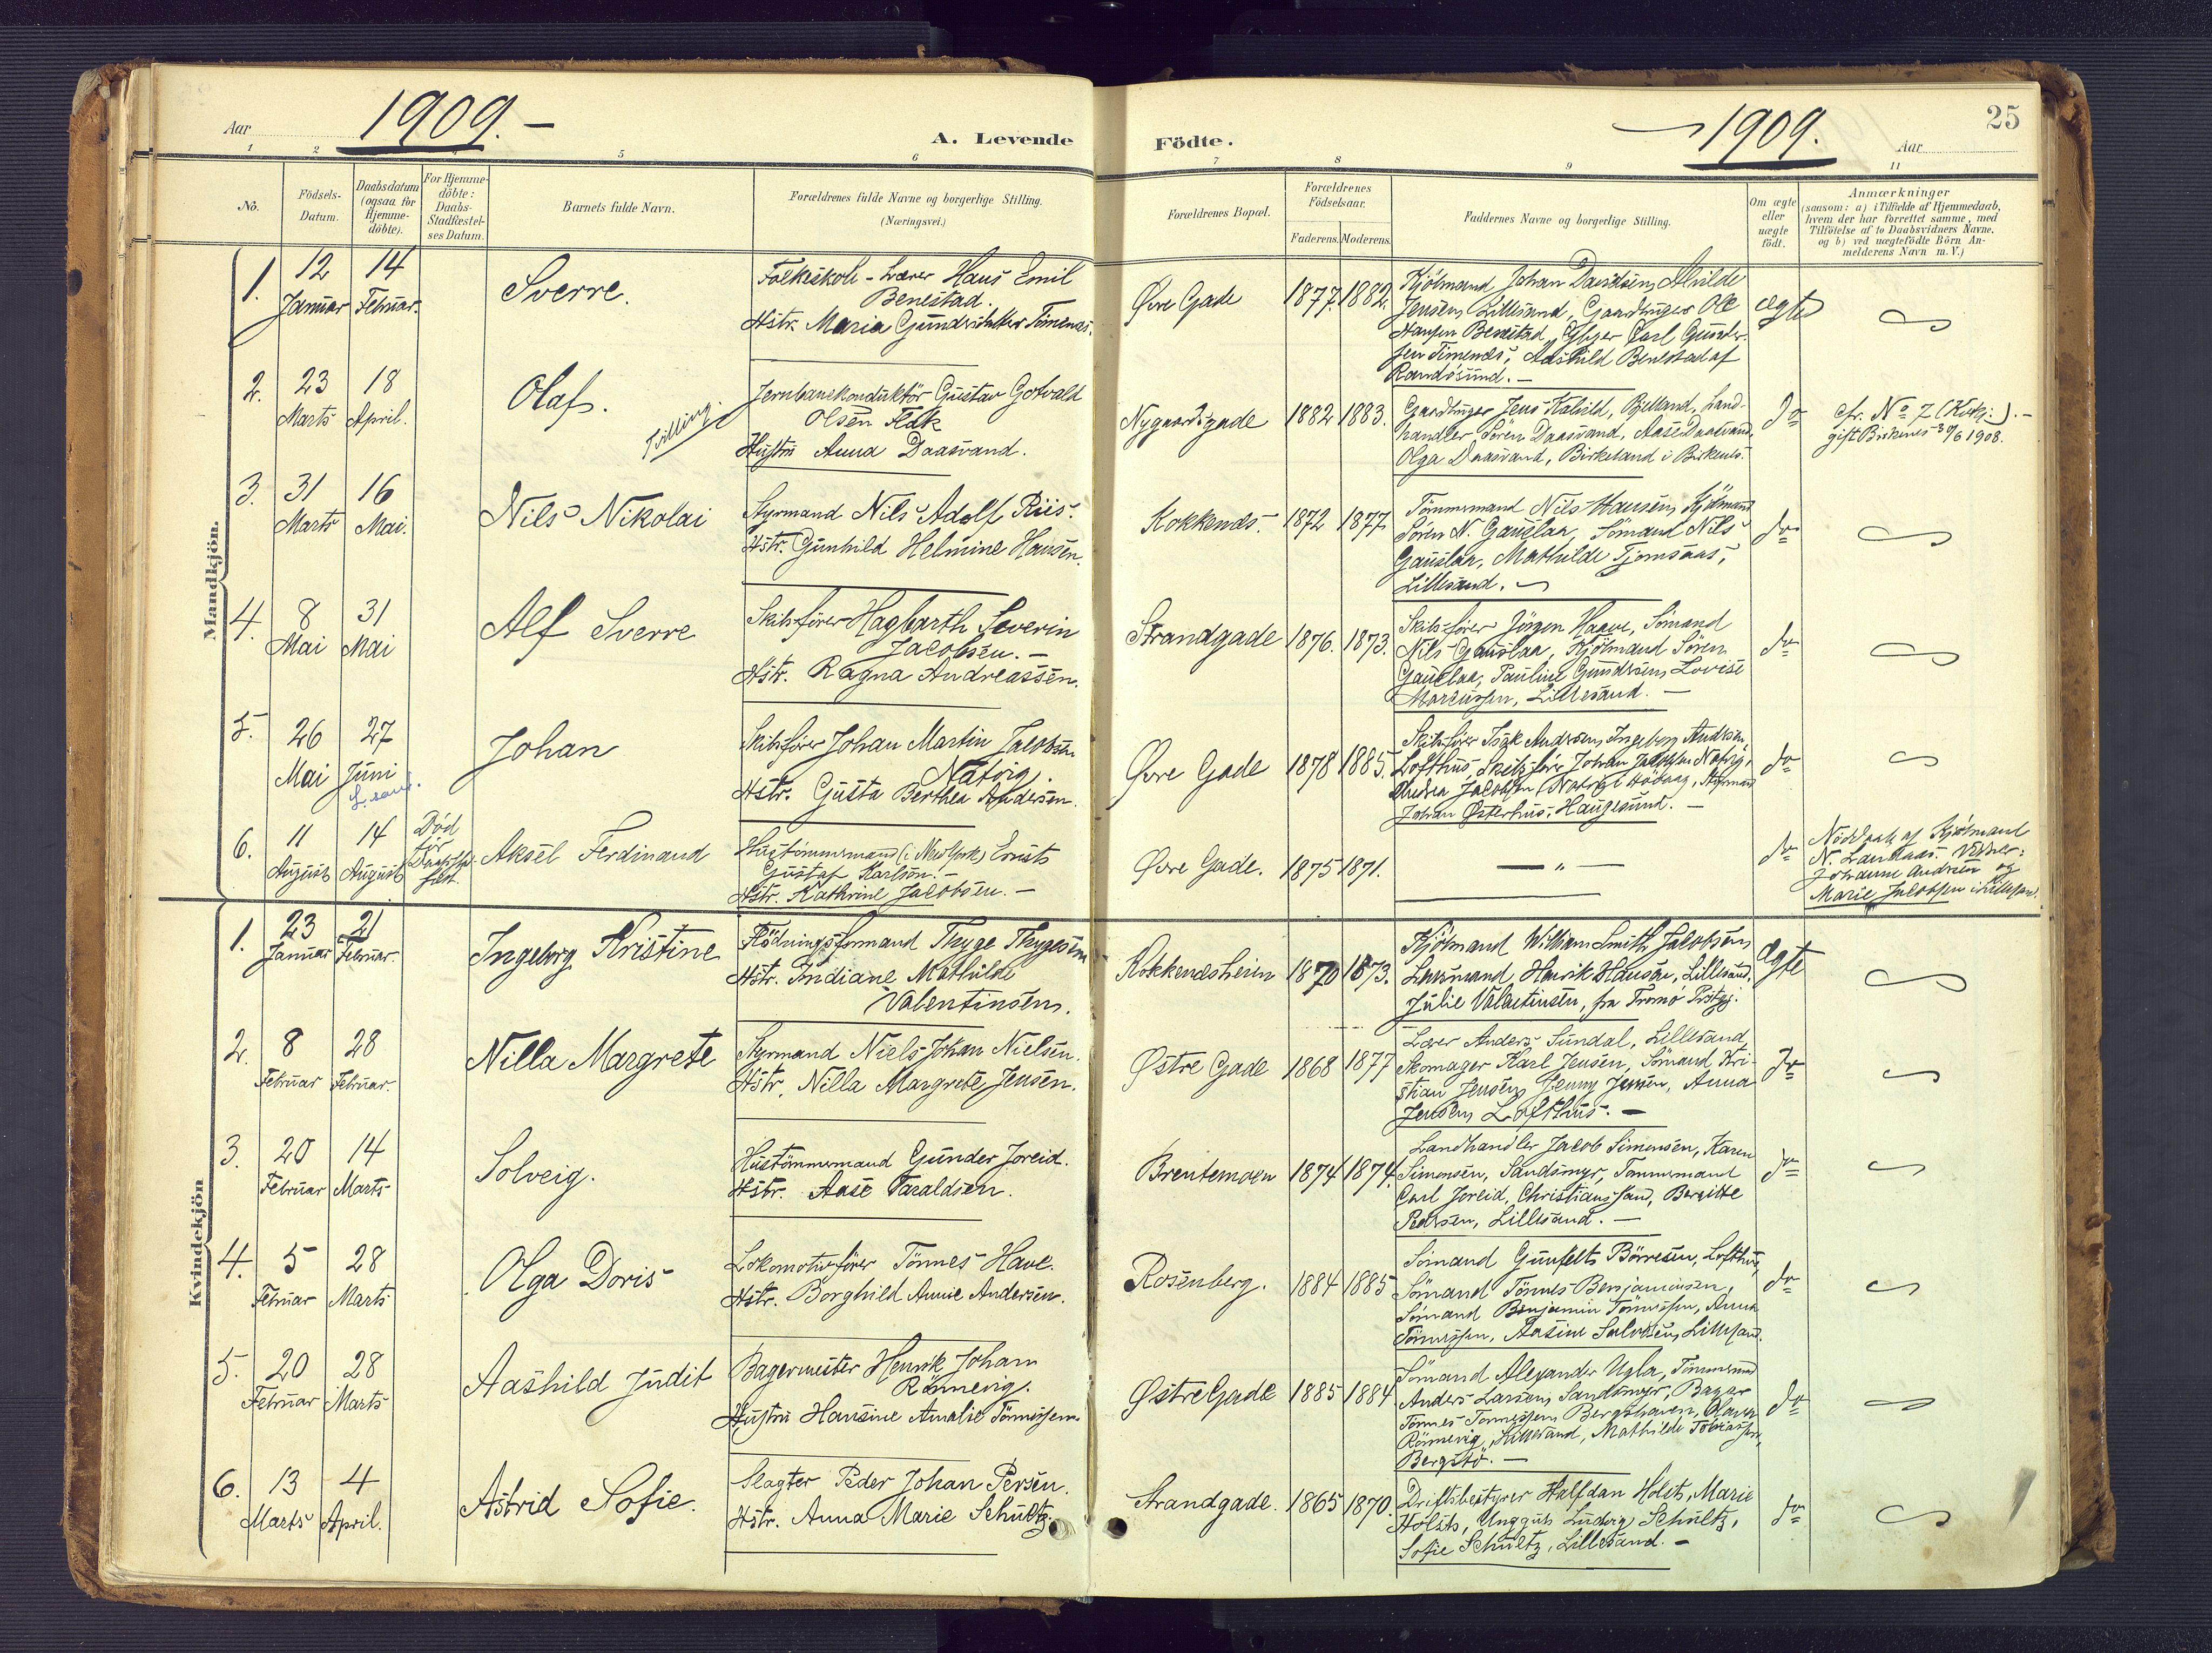 Aar 1909. —
A. Levende
Födte.
1909.
Aar
25
1 2 4 5 6 7 8 9 11
No.
Födsels-
Datum.
Daabsdatum
(ogsaa for
Hjemme-
döbte).
For Hjemme-
döbte:
Daabs-
Stadfæstel-
ses Datum.
Barnets fulde Navn.
Forældrenes fulde Navne og borgerlige Stilling.
(Næringsvei.)
Forældrenes Bopæl.
Forældrenes
Födselsaar.
Faderens.
Moderens.
Faddernes Navne og borgerlige Stilling.
Om ægte
eller
uægte
födt.
Anmærkninger
(saasom: a) i Tilfælde af Hjemmedaab,
hvem der har forrettet samme, med
Tilföielse af to Daabsvidners Navne,
og b) ved uægtefödte Börn An-
melderens Navn m. V.)
Mandkjön.
1.
12
Januar
14
Februar.
Sverre.
Folkeskole-Lærer Hans Emil
Benestad.
Hstr. Maria Timenes.
Øvre Gade
1877
1882.
Kjölmand Johan Davidsen, Alvilde
Jensen, Lillesand, Gaardbruger Ole
Hansen Benestad, Carl Gunder-
sen Timenes, Aashild Benestad af
Randösund. —
ægte
2.
23
Marts
18
April.
Olaf.
Tvilling.
Jernbanekonduktör Gustav Gotvald
Olsen Flak
Hustru Anna Daasvand.
Nygaardsgade
1882
1883.
Gaardbruger Jens Kalvild, Bjelland, Land-
handler Sören Daasvand, Aase Daasvand,
Olga Daasvand, Birkeland i Birkenes.
do
cfr. No 7 (Kvkj:). —
gift Birkenes 30/6 1908.
3.
31
Marts
16
Mai.
Nils Nikolai
Styrmand Nils Adolf Riis.
Hstr. Gunhild Helmine Hansen.
Kokkenes.
1872
1877
Tömmermand Nils Hansen, Kjölmand
Sören N. Gauslaa, Sömand Nils
Gauslaa, Mathilde Tjomsaas,
Lillesand. —
do
4.
8
Mai
31
Mai
Alf Sverre
Skibsförer Hagbarth Severin
Jacobsen. —
Hstr. Ragna Andreassen.
Strandgade
1876.
1873.
Skibsförer Jörgen Haave, Sömand
Nils Gauslaa, Kjölmand Sören
Gauslaa, Pauline Gundersen, Lovise
Marcussen, Lillesand. —
do
5.
26
Mai
27
Juni
L.sand.
Johan
Skibsförer Johan Martin Jacobsen
Natvig.
Hstr. Gusta Berthea Andersen.
Øvre Gade
1878
1885.
Skibsförer Isak Andersen, Ingeborg Andersen,
Lofthus, Skibsförer Johan Jacobsen Natvig,
Andrea Jacobsen (Natvig) Höivaag, Styrmand
Johan Østerhus, Haugesund. —
do
6.
11
August
14
August
Död
för
Daabsstad-
fæst.
Aksel Ferdinand
Hustömmermand (i New York) Ernst
Gustaf Karlson. —
Hstr. Kathrine Jacobsen. —
Øvre Gade.
1875
1871.
— „ —
do
Nöddaab af Kjölmand
N. Landaas. Vidner:
Johanne Andersen og
Marie Jacobsen i Lillesand.
Kvindekjön
1.
23
Januar
21
Februar.
Ingeborg Kristine
Flödningsformand Thyge Thygesen
Hstr. Indiane Mathilde
Valentinsen.
Kokkenesheien
1870
1873.
Kjölmand William Smith Jacobsen,
Lensmand Henrik Hansen, Lillesand,
Julie Valentinsen, fra Tromö Prstgj.
Ægte
2.
8
Februar
28
Februar.
Nilla Margrete
Styrmand Niels Johan Nielsen.
Hstr. Nilla Margrete Jensen.
Østre Gade
1868
1877
Lærer Anders Sundal, Lillesand,
Skomager Karl Jensen, Sömand Kri-
stian Jensen, Jenny Jensen, Anna
Jensen, Lofthus. —
do
3.
20
Februar
14
Marts
Solveig.
Hustömmermand Gunder Joreid.
Hstr. Aase Taraldsen.
Brentemoen
1874
1874.
Landhandler Jacob Simonsen, Karen
Simonsen, Sandsmyr, Tömmermand
Carl Joreid, Christianssand, Bergitte
Pedersen, Lillesand. —
do
4.
5
Februar
28
Marts
Olga Doris
Lokomotivförer Tönnes Have.
Hstr. Borghild Annie Andersen.
Rosenberg.
1884
1885
Sömand Gunfelt Börresen, Lofthus,
Sömand Tönnes Benjaminsen,
Sömand Benjamin Tönnessen, Anna
Tönnessen, Aasine Salvesen, Lillesand.
do
5.
20
Februar
28
Marts
Aashild Judit
Bagermester Henrik Johan
Rönnevig.
Hustru Hansine Amalie Tönnessen
Østre Gade
1885
1884
Sömand Alexander Ugla, Tömmermand
Anders Larsen, Sandsmyr, Bager
Tönnes Tönnessen, Bergshaven, Olava
Rönnevig, Lillesand, Mathilde Tobiassen,
Bergstö. —
do
6.
13
Marts
4
April.
Astrid Sofie.
Slagter Peder Johan Persen.
Hstr. Anna Marie Schultz.
Strandgade.
1865
1870.
Driftsbestyrer Halfdan Holsts, Marie
Holsts, Unggut Ludvig Schultz,
Sofie Schultz, Lillesand. —
do